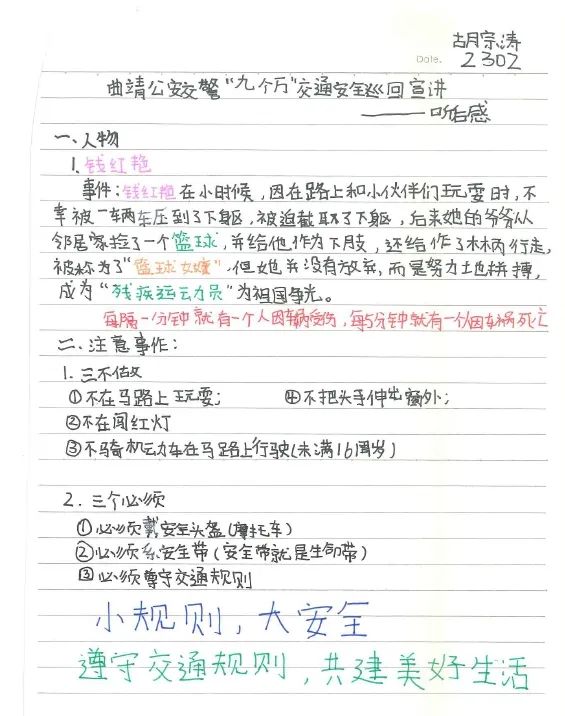 胡宗涛
Date. 2302
曲靖公安交警“九个万”交通安全巡回宣讲
——听后感
一、人物
1. 钱红艳
事件:钱红艳在小时候,因在路上和小伙伴们玩耍时,不
幸被一辆车压到了下躯,被迫截取了下躯,后来她的爷爷从
邻居家捡了一个篮球,并给他作为下肢,还给作了木柄行走,
被称为了“篮球女孩”,但她并没有放弃,而是努力地拼搏,
成为“残疾运动员”为祖国争光。
每隔一分钟就有一个人因车祸受伤,每5分钟就有一个人因车祸死亡
二、注意事作:
1. 三不做
①不在马路上玩耍; ④不把头手伸出窗外;
②不在闯红灯
③不骑机动车在马路上行驶(未满16周岁)
2. 三个必须
①必须戴安全头盔(摩托车)
②必须系安全带(安全带就是生命带)
③必须尊守交通规则
小规则,大安全
遵守交通规则,共建美好生活